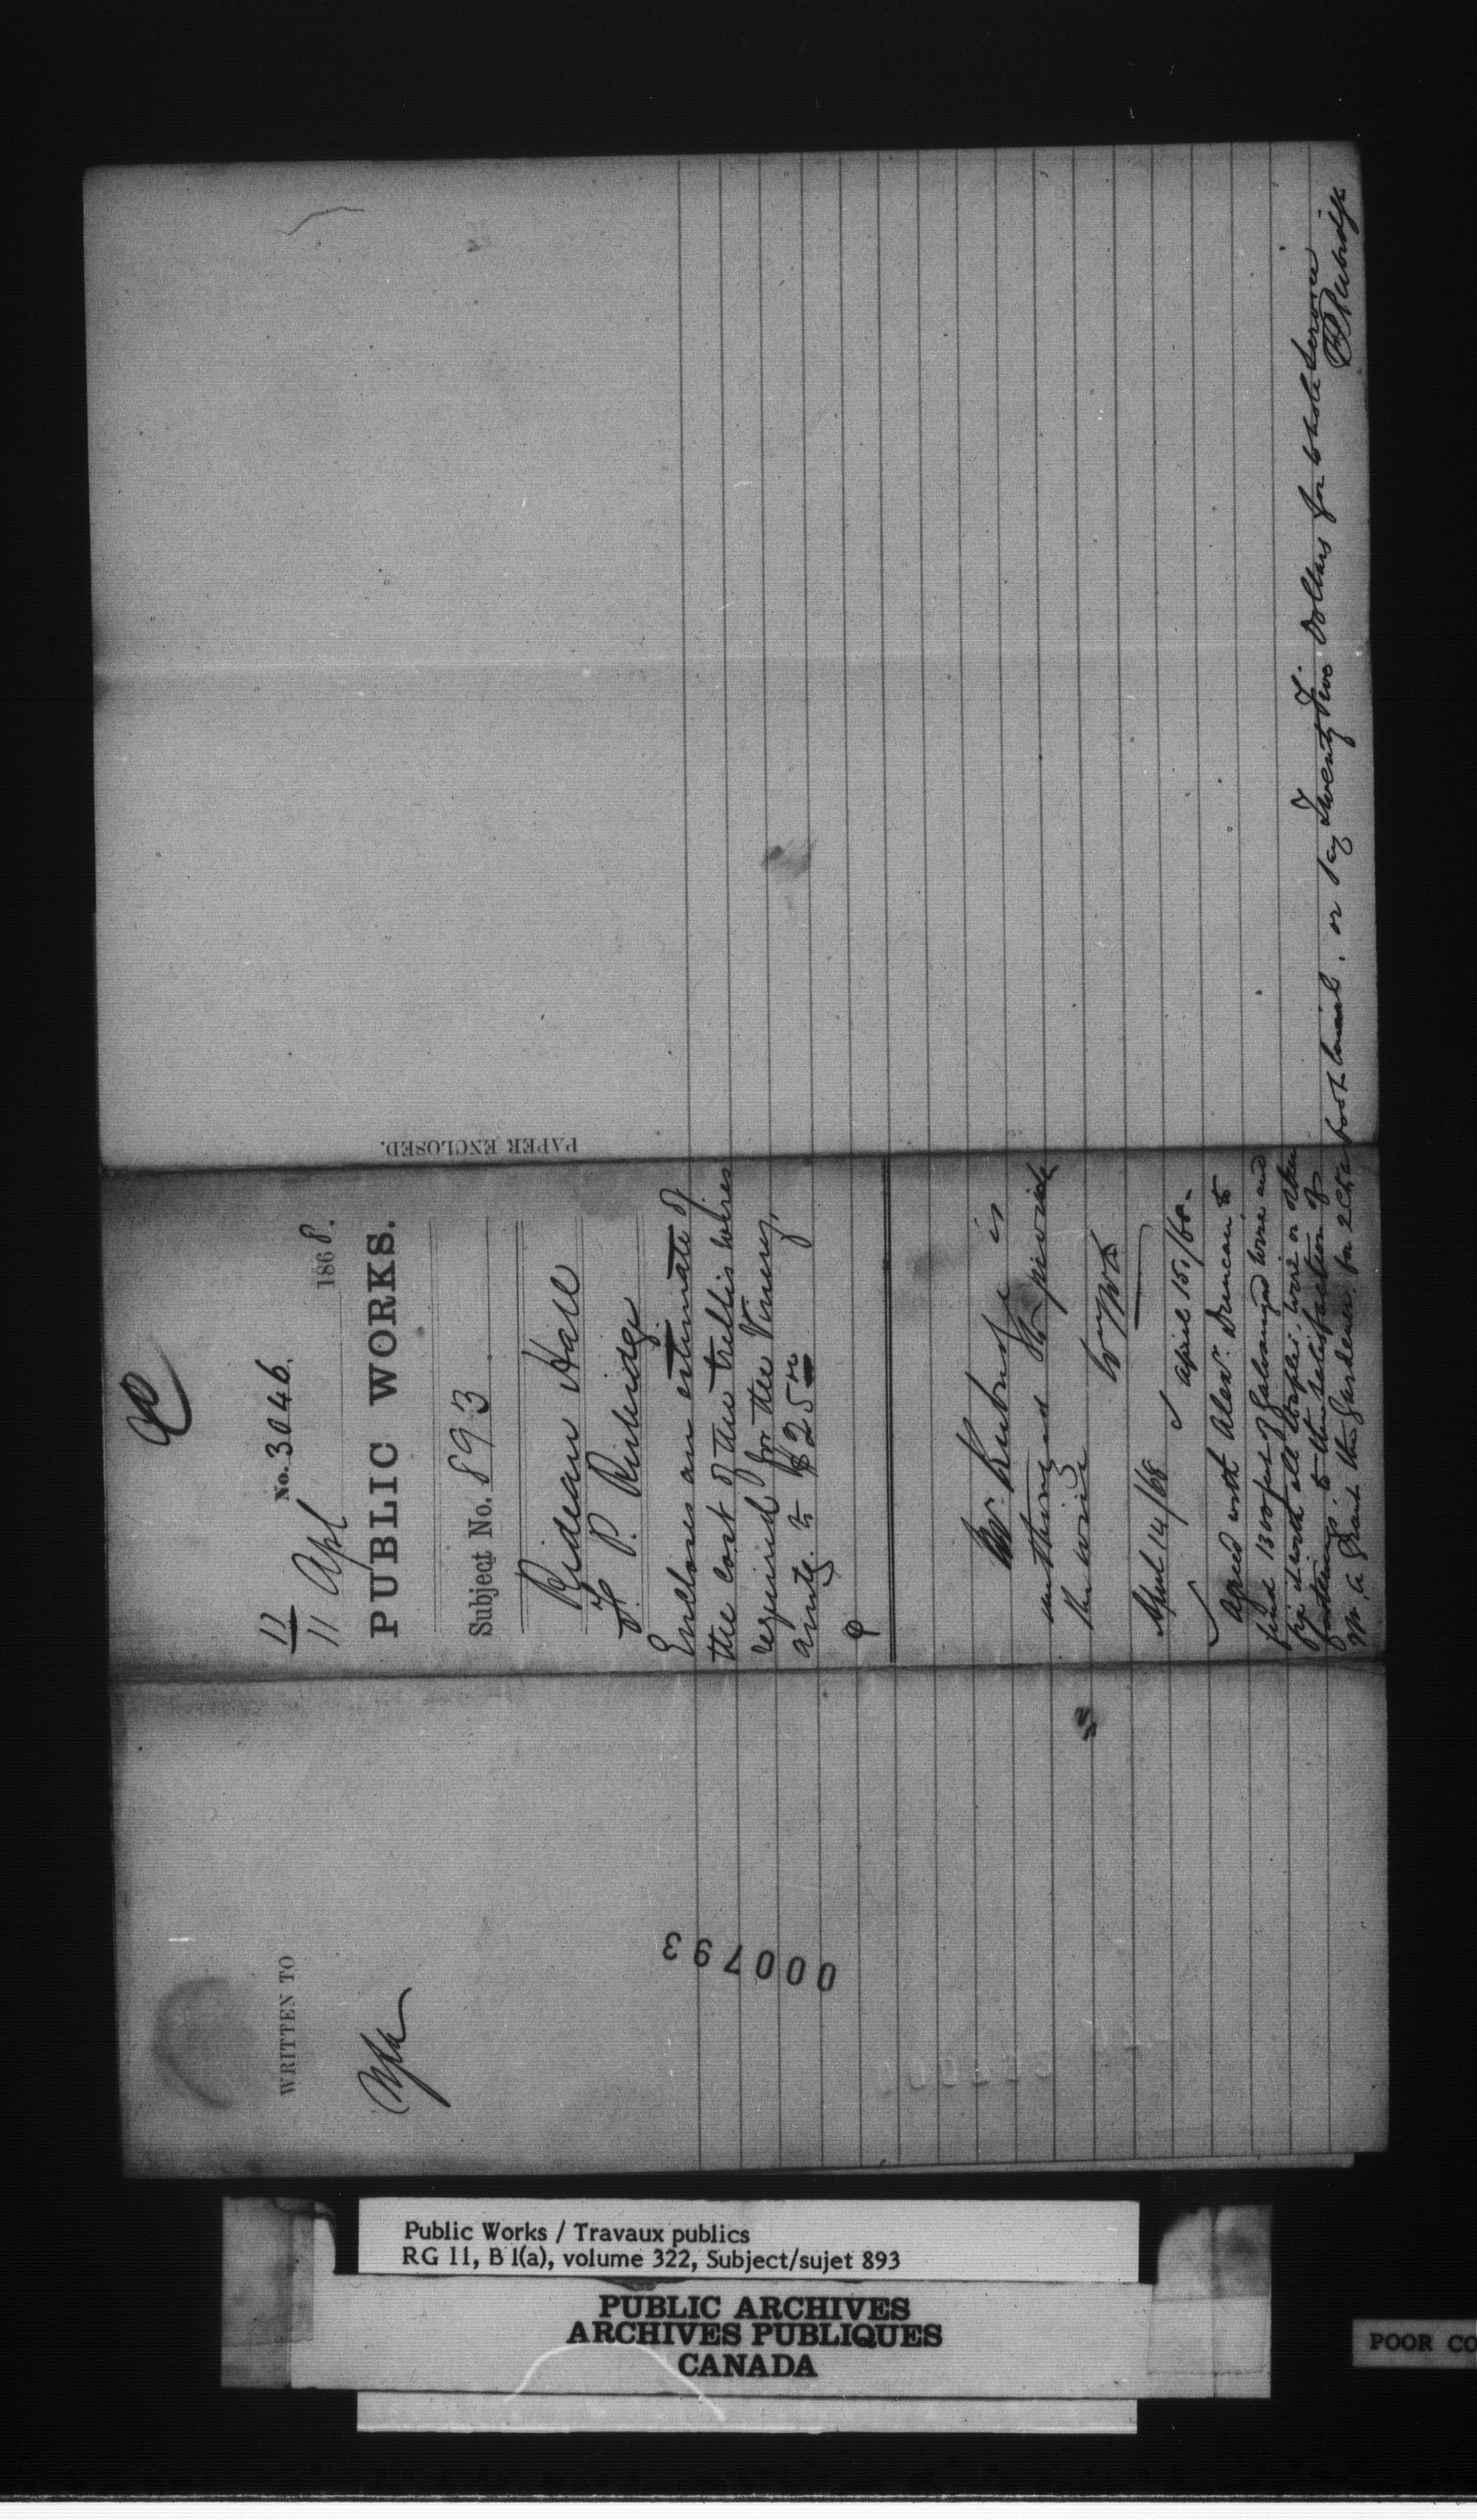 No. 3046.
11
11 Apl 1868.
PUBLIC WORKS.
Subject No. 893
Rideau Hall
F. P. Rubidge
Encloses an estimate of
the cost of the trellis wires
required for the Vinery,
amtg. to $25.00
Mr. Rubidge is
authorized to provide
the wire
April 14/68
April 15./68-
Agreed with Alexr. Duncan to
find 1300 feet of Galvanized wire and
fix it with all staples, wire or other
fastenings to the satisfaction of
Mr. A Grant the Gardener. for 2 Cts a
foot lineal. or say Twenty Five Dollars for whole Service
PAPER ENCLOSED.
WRITTEN TO
000793
Public Works / Travaux publics
RG 11, B 1(a), volume 322, Subject/sujet 893
PUBLIC ARCHIVES
ARCHIVES PUBLIQUES
CANADA
POOR CO